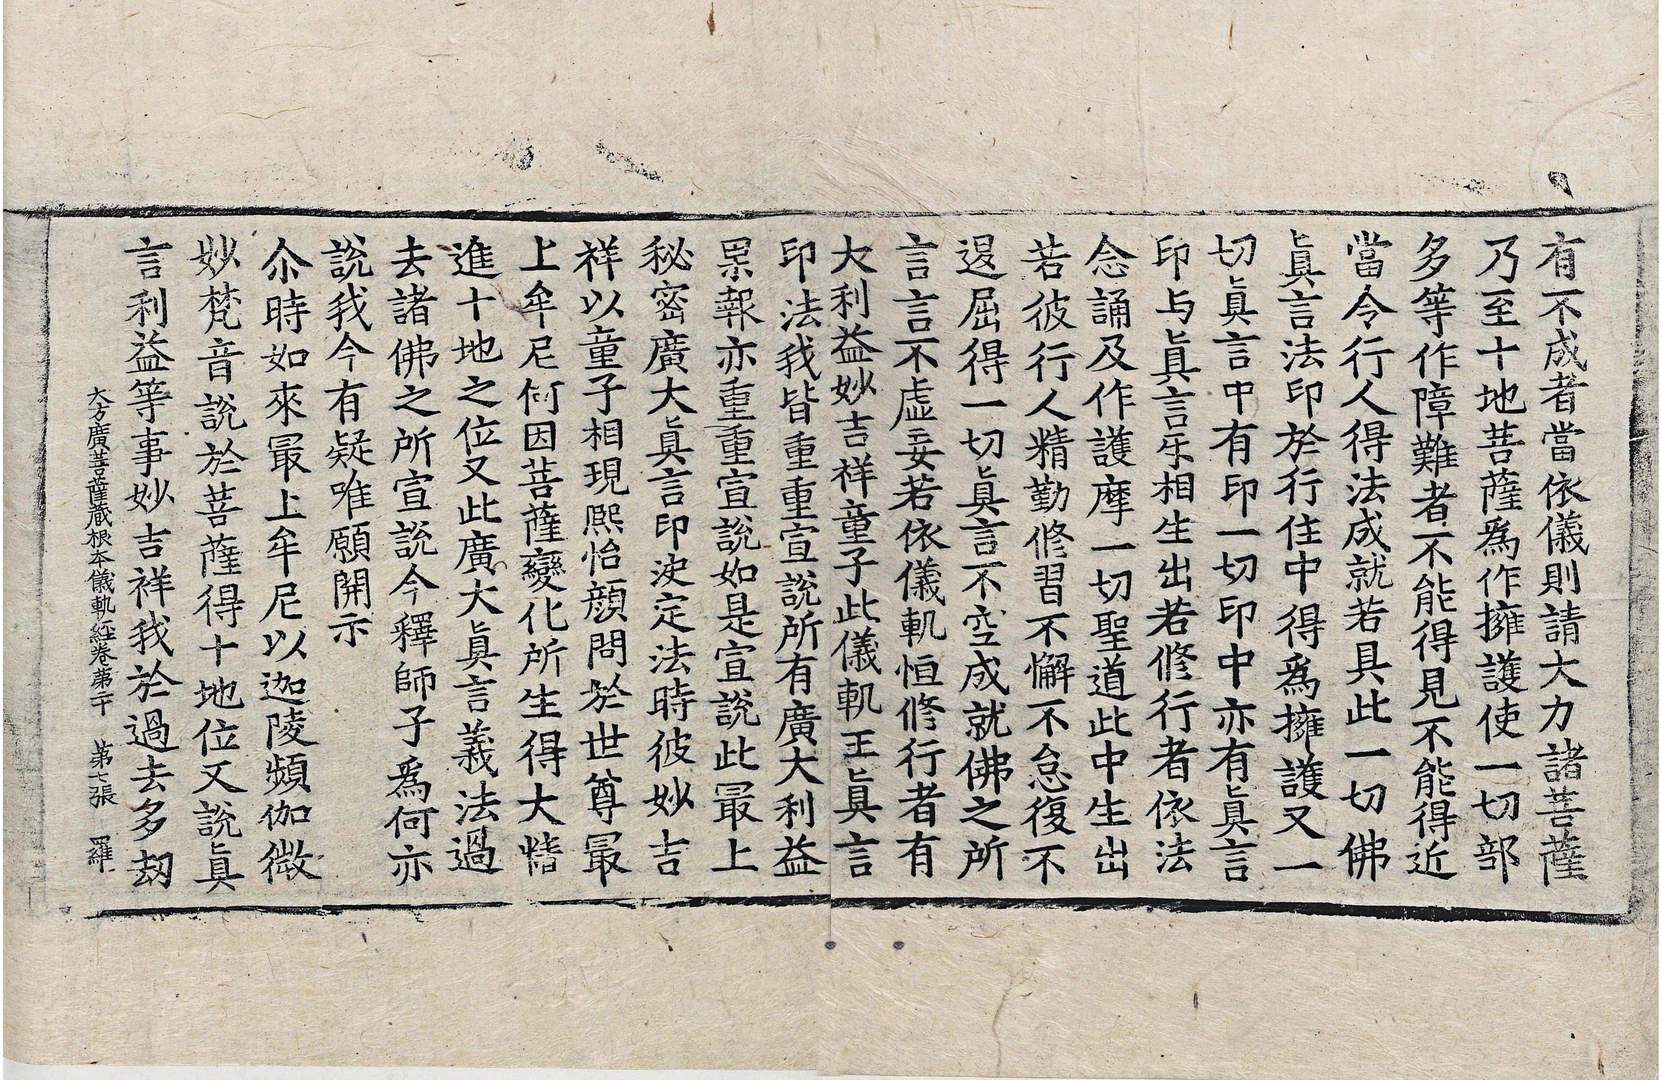 有不成者當依儀則請大力諸菩薩
乃至十地菩薩為作擁護使一切部
多等作障難者不能得見不能得近
當令行人得法成就若具此一切佛
真言法印於行住中得為擁護又一
切真言中有印一切印中亦有真言
印与真言乐相生出若修行者依法
念誦及作護摩一切聖道此中生出
若彼行人精勤修習不懈不怠復不
退屈得一切真言不空成就佛之所
言言不虛妄若依儀軌恒修行者有
大利益妙吉祥童子此儀軌王真言
印法我皆重重宣說所有廣大利益
果報亦重重宣說如是宣說此最上
秘密廣大真言印決定法時彼妙吉
祥以童子相現熙怡顏問於世尊最
上牟尼何因菩薩變化所生得大智
進十地之位又此廣大真言義法過
去諸佛之所宣說今釋師子為何亦
說我今有疑唯願開示
尒時如來最上牟尼以迦陵頻伽微
妙梵音說於菩薩得十地位又說真
言利益等事妙吉祥我於過去多劫
大方廣菩薩藏根本儀軌經卷第二十 第七張 羅